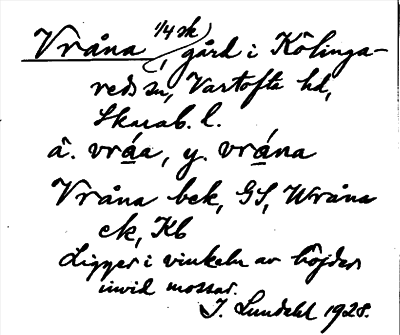 Vråna 1/4 sk, gård i Kölinga-
reds sn, Vartofta hd,
Skarab. l.
ä. vråa, y. vråna
Vråna bek, GS, Wråna
ek, Kb
Ligger i vinkeln av höjder
invid mossar.
J. Lundahl 1928.